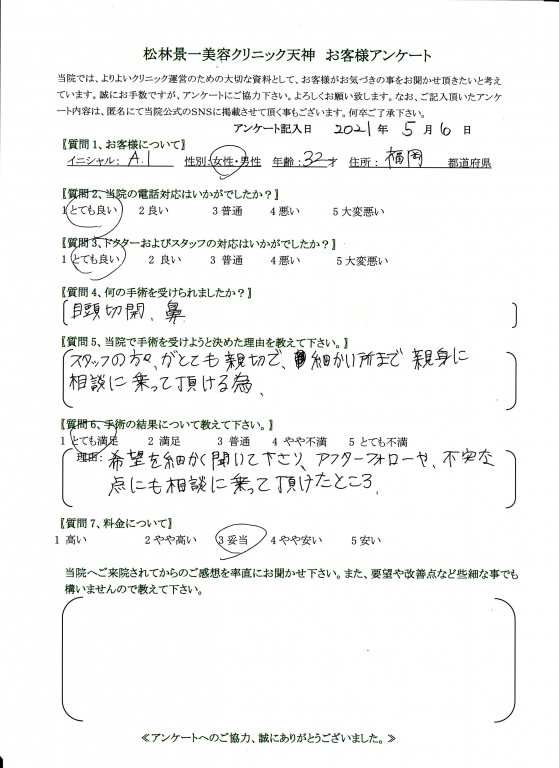 松林景一美容クリニック天神 お客様アンケート
当院では、よりよいクリニック運営のための大切な資料として、お客様がお気づきの事をお聞かせ頂きたいと考え
ています。誠にお手数ですが、アンケートにご協力下さい。よろしくお願い致します。なお、ご記入頂いたアンケ
ート内容は、匿名にて当院公式のSNSに掲載させて頂く事もございます。何卒ご了承下さい。
アンケート記入日 2021年 5月 6日
〖質問1、お客様について〗
イニシャル： A.I 性別：女性・男性 年齢：32才 住所： 福岡 都道府県
〖質問2、当院の電話対応はいかがでしたか？〗
1 とても良い 2 良い 3 普通 4 悪い 5 大変悪い
〖質問3、ドクターおよびスタッフの対応はいかがでしたか？〗
1 とても良い 2 良い 3 普通 4 悪い 5 大変悪い
〖質問4、何の手術を受けられましたか？〗
目頭切開、鼻
〖質問5、当院で手術を受けようと決めた理由を教えて下さい。〗
スタッフの方々がとても親切で、細かい所まで親身に
相談に乗って頂ける為、
〖質問6、手術の結果について教えて下さい。〗
1 とても満足 2 満足 3 普通 4 やや不満 5 とても不満
理由： 希望を細かく聞いて下さり、アフターフォローや、不安な
点にも相談に乗って頂けたところ、
〖質問7、料金について〗
1 高い 2 やや高い 3 妥当 4 やや安い 5 安い
当院へご来院されてからのご感想を率直にお聞かせ下さい。また、要望や改善点など些細な事でも
構いませんので教えて下さい。
≪アンケートへのご協力、誠にありがとうございました。≫